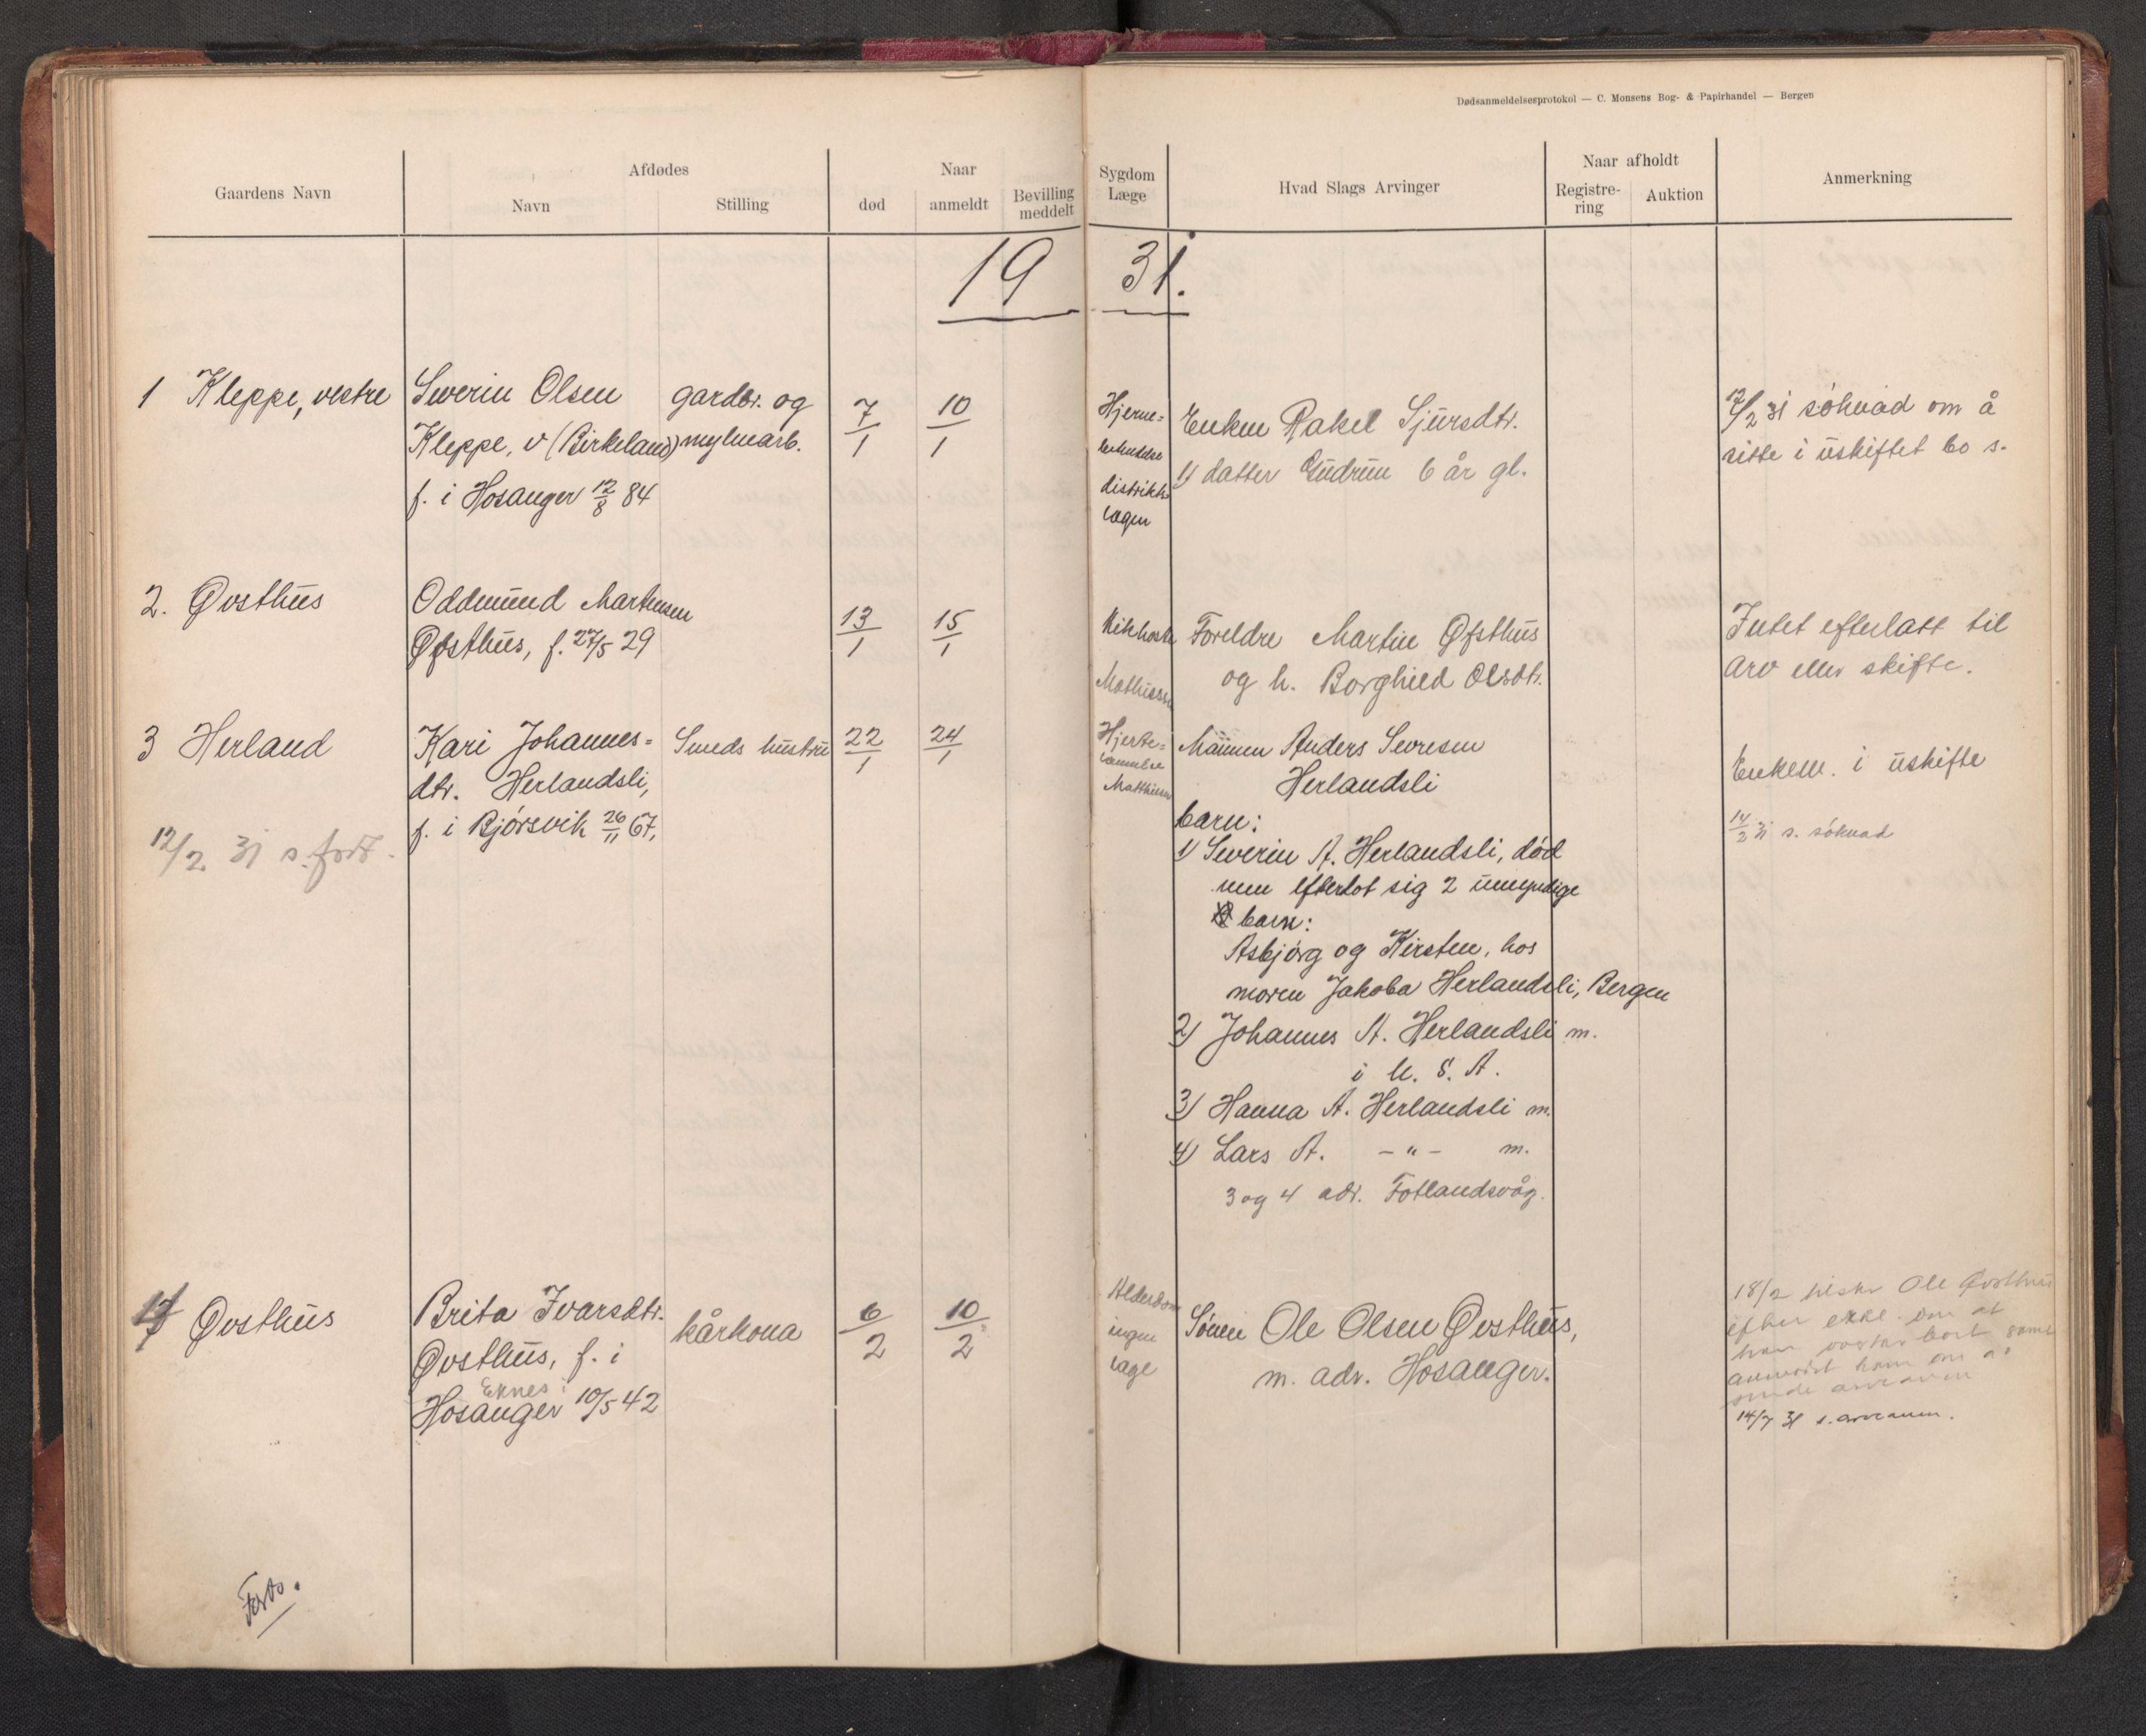 Dødsanmeldelsesprotokol — C. Monsens Bog- & Papirhandel — Bergen
Gaardens Navn
Afdødes
Navn
Stilling
Naar
død
anmeldt
Bevilling
meddelt
Sygdom
Læge
Hvad Slags Arvinger
Naar afholdt
Registre-
ring
Auktion
Anmerkning
19 31.
1 Kleppe, vestre
Severin Olsen
Kleppe, v (Birkeland)
f. i Hosanger 12/8 84
gardbr. og
mylnearb.
7/1
10/1
Hjerne=
betendelse
distrikts
lægen
Enken Rakel Sjursdtr.
1) datter Gudrun 6 år gl.
12/2 31 søknad om å
sitte i uskiftet bo s.
2. Øvsthus
Oddmund Martinsen
Øfsthus, f. 27/5 29
13/1
15/1
Kikhoste
Mathiesen
Foreldre Martin Øfsthus
og h. Borghild Olsdtr.
Intet efterlatt til
arv eller skifte.
3 Herland
12/2 31 s.
Kari Johannes=
dtr. Herlandsli,
f. i Bjørsvik 26/11 67,
Smeds hustru
22/1
24/1
Hjerte=
lammelse
Matthiesen
Mannen Anders Severesen
Herlandsli
barn:
1) Severin A. Herlandsli, død
men efterlot sig 2 umyndige
barn:
Asbjørg og Kirsten, hos
moren Jakoba Herlandsli, Bergen
2) Johannes A. Herlandsli m.
i U. S. A.
3) Hanna A. Herlandsli m.
4) Lars A. -"- m.
3 og 4 adr. Fotlandsvåg.
Enkem. i uskifte
14/2 31 s. søknad
4 Øvsthus
Brita Ivarsdtr.
Øvsthus, f. i
Eknes i
Hosanger 10/5 42
kårkona
6/2
10/2
Alderdom
ingen
læge
Sønnen Ole Olsen Øvsthus,
m. adr. Hosanger.
18/2 Ole Øvsthus
efter om at
han bort
ham om at
14/7 31 s.
Forts.